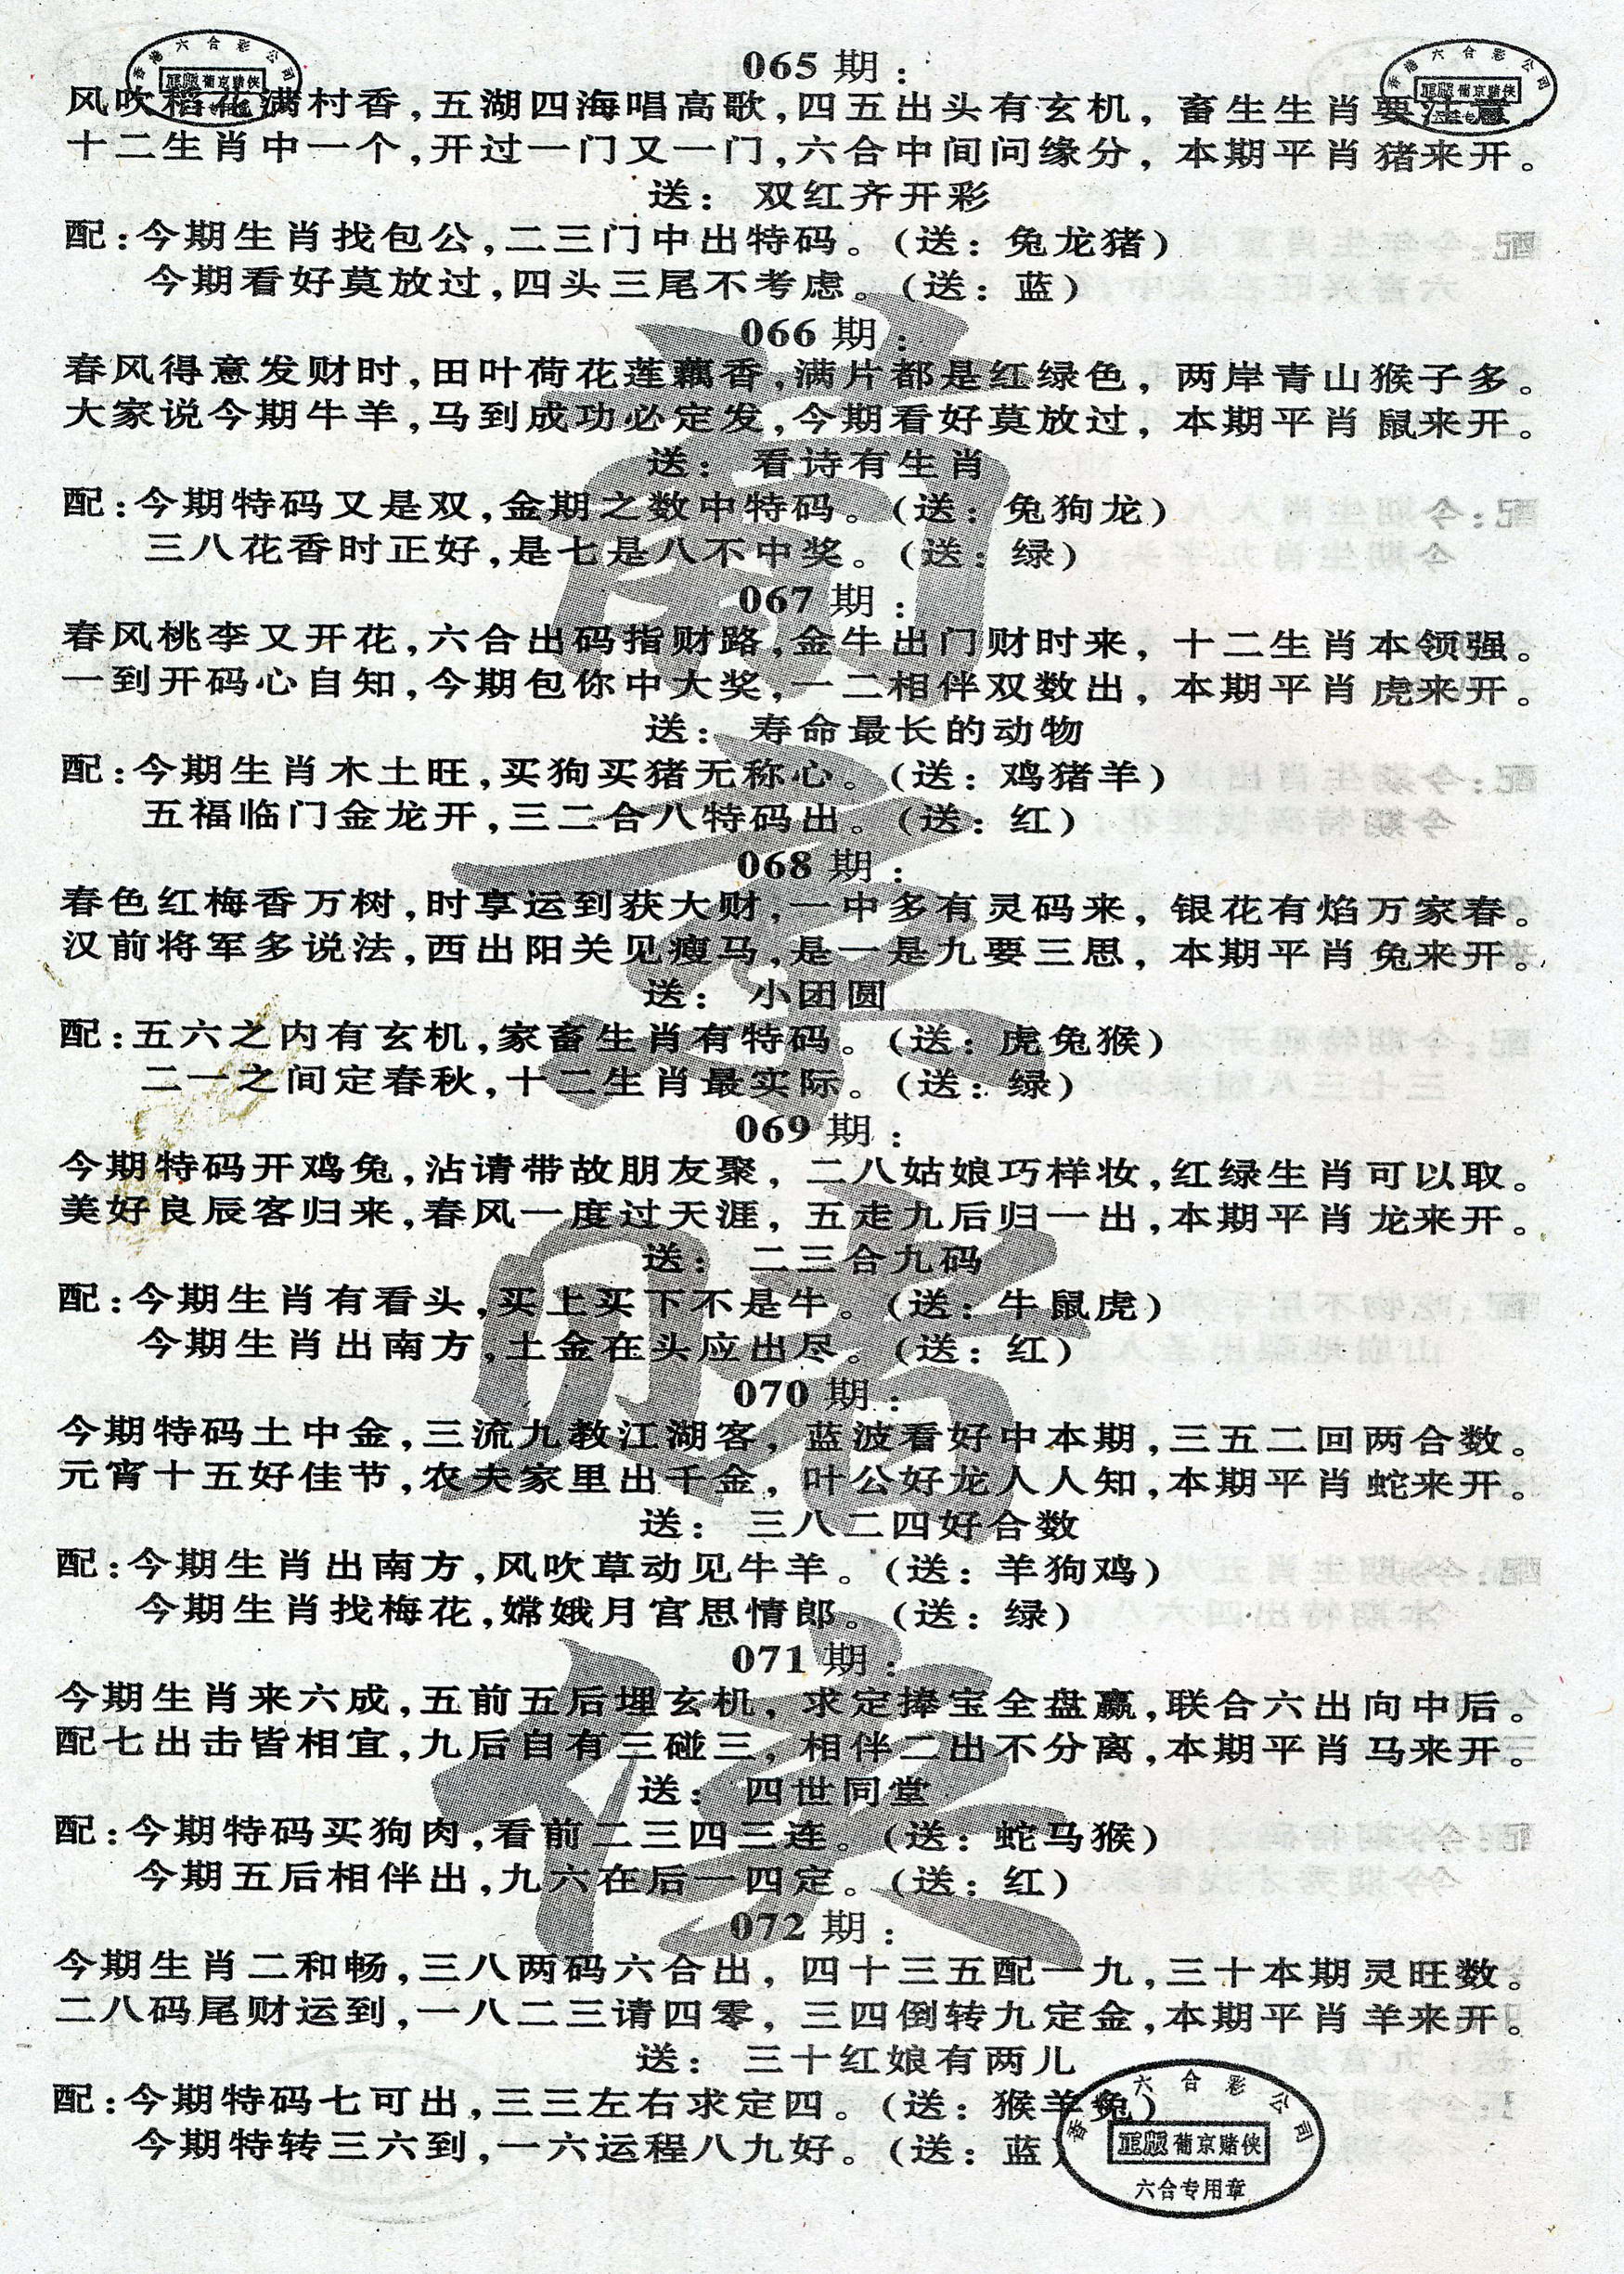 香港六合彩公司
正版葡京赌侠
香港六合彩公司
正版葡京赌侠
065期：
风吹稻花满村香，五湖四海唱高歌，四五出头有玄机，畜生生肖要注意。
十二生肖中一个，开过一门又一门，六合中间问缘分，本期平肖猪来开。
送：双红齐开彩
配：今期生肖找包公，二三门中出特码。（送：兔龙猪）
今期看好莫放过，四头三尾不考虑。（送：蓝）
066期：
春风得意发财时，田叶荷花莲藕香，满片都是红绿色，两岸青山猴子多。
大家说今期牛羊，马到成功必定发，今期看好莫放过，本期平肖鼠来开。
送：看诗有生肖
配：今期特码又是双，金期之数中特码。（送：兔狗龙）
三八花香时正好，是七是八不中奖。（送：绿）
067期：
春风桃李又开花，六合出码指财路，金牛出门财时来，十二生肖本领强。
一到开码心自知，今期包你中大奖，一二相伴双数出，本期平肖虎来开。
送：寿命最长的动物
配：今期生肖木土旺，买狗买猪无称心。（送：鸡猪羊）
五福临门金龙开，三二合八特码出。（送：红）
068期：
春色红梅香万树，时享运到获大财，一中多有灵码来，银花有焰万家春。
汉前将军多说法，西出阳关见瘦马，是一是九要三思，本期平肖兔来开。
送：小团圆
配：五六之内有玄机，家畜生肖有特码。（送：虎兔猴）
二一之间定春秋，十二生肖最实际。（送：绿）
069期：
今期特码开鸡兔，沾请带故朋友聚，二八姑娘巧样妆，红绿生肖可以取。
美好良辰客归来，春风一度过天涯，五走九后归一出，本期平肖龙来开。
送：二三合九码
配：今期生肖有看头，买上买下不是牛。（送：牛鼠虎）
今期生肖出南方，土金在头应出尽。（送：红）
070期：
今期特码土中金，三流九教江湖客，蓝波看好中本期，三五二回两合数。
元宵十五好佳节，农夫家里出千金，叶公好龙人人知，本期平肖蛇来开。
送：三八二四好合数
配：今期生肖出南方，风吹草动见牛羊。（送：羊狗鸡）
今期生肖找梅花，嫦娥月宫思情郎。（送：绿）
071期：
今期生肖来六成，五前五后埋玄机，求定捧宝全盘赢，联合六出向中后。
配七出击皆相宜，九后自有三碰三，相伴二出不分离，本期平肖马来开。
送：四世同堂
配：今期特码买狗肉，看前二三四三连。（送：蛇马猴）
今期五后相伴出，九六在后一四定。（送：红）
072期：
今期生肖二和畅，三八两码六合出，四十三五配一九，三十本期灵旺数。
二八码尾财运到，一八二三请四零，三四倒转九定金，本期平肖羊来开。
送：三十红娘有两儿
配：今期特码七可出，三三左右求定四。（送：猴羊兔）
今期特转三六到，一六运程八九好。（送：蓝）
香港六合彩公司
正版葡京赌侠
六合专用章
葡京赌侠